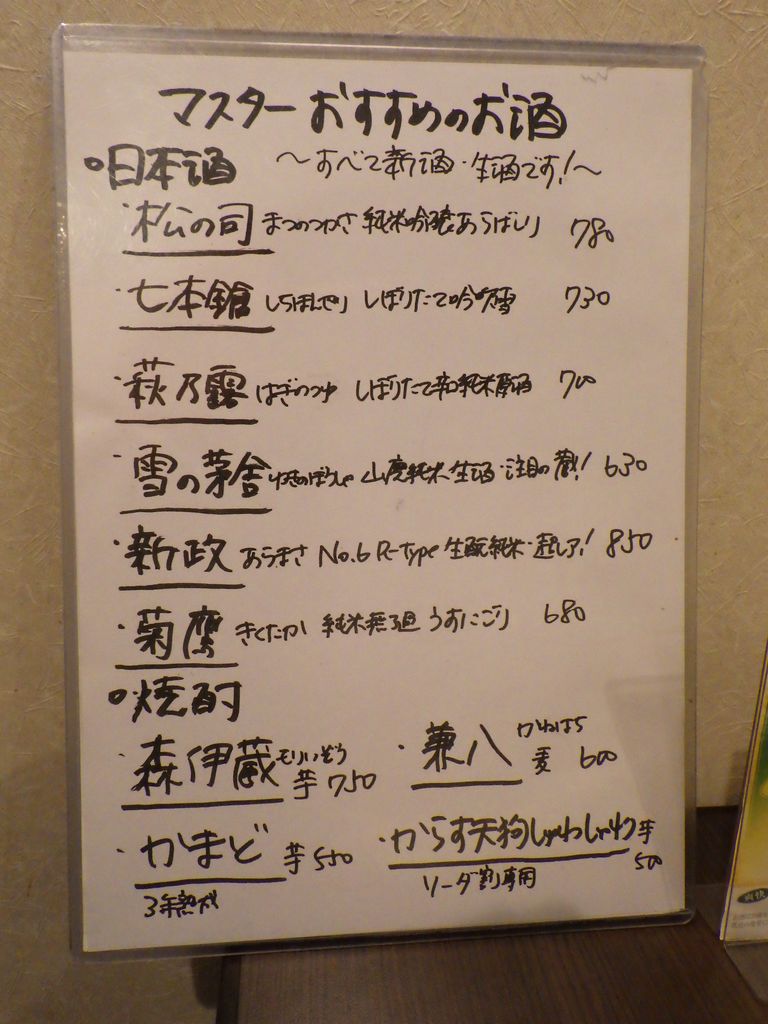 マスターおすすめのお酒
○日本酒 〜すべて新酒・生酒です!〜
・松の司 まつのつかさ 純米吟醸あらばしり 780
・七本鎗 しちほんやり しぼりたて吟吹雪 730
・萩乃露 はぎのつゆ しぼりたて辛口純米原酒 700
・雪の茅舎 ゆきのぼうしゃ 山廃純米生酒・注目の蔵! 630
・新政 あらまさ No.6 R-type 生酛純米・超レア! 850
・菊鷹 きくたか 純米無濾過 うすにごり 680
○焼酎
・森伊蔵 もりいぞう 芋 750 ・兼八 かねはち 麦 600
・かまど 芋 550 ・からす天狗しゅわしゅわ 芋 500
3年熟成 ソーダ割専用
爽快